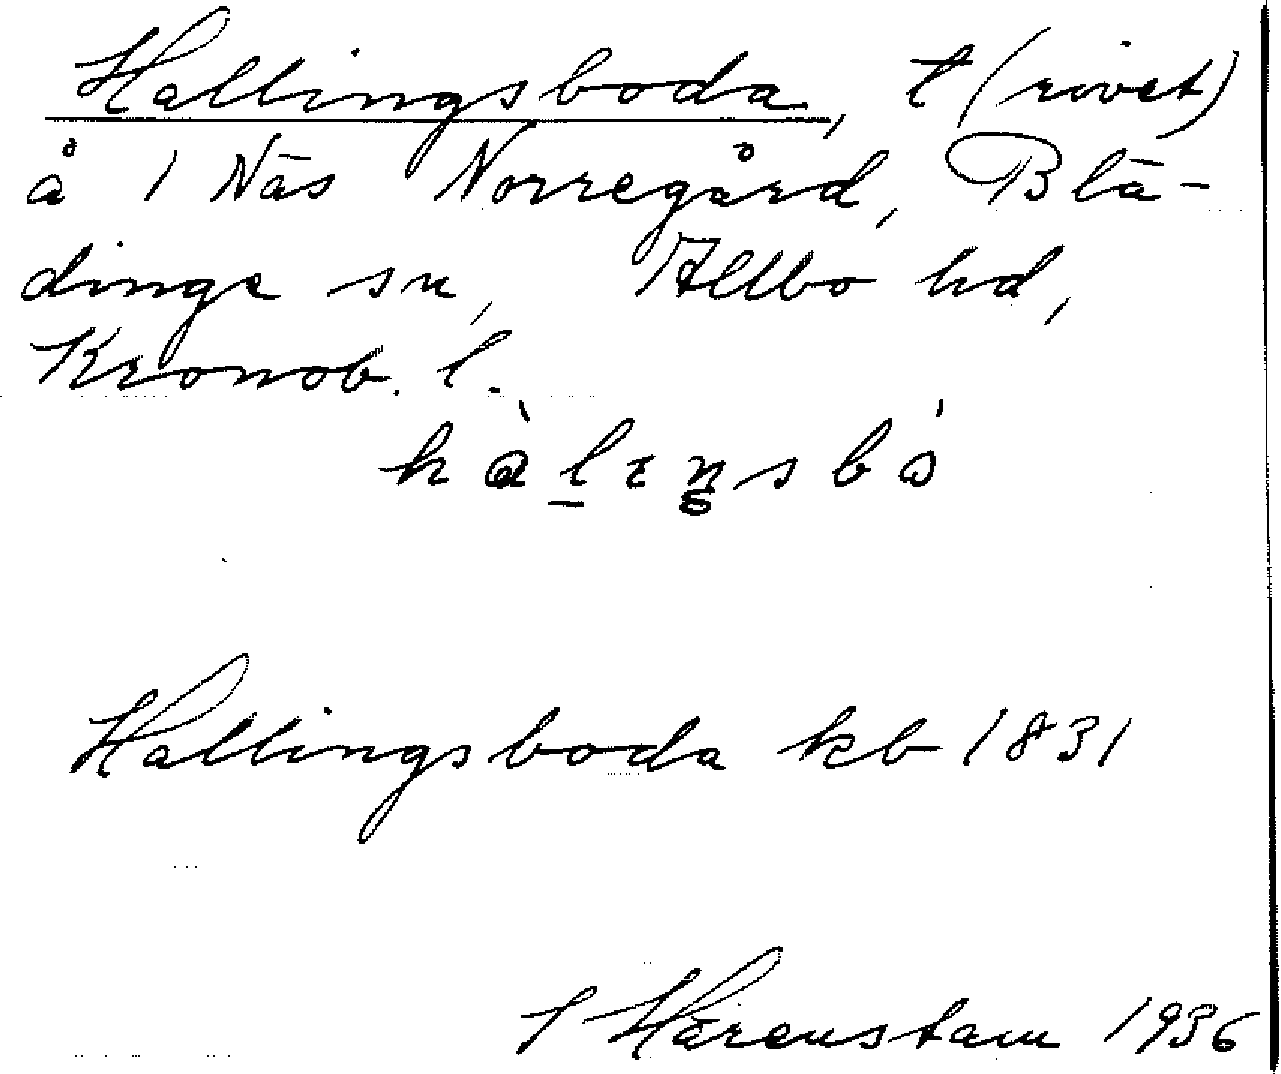 Hallingsboda, t (rivet)
å 1 Näs Norregård, Blä-
dinge sn, Allbo hd,
Kronob. l.
Hallingsboda kb 1831
Härenstam 1936